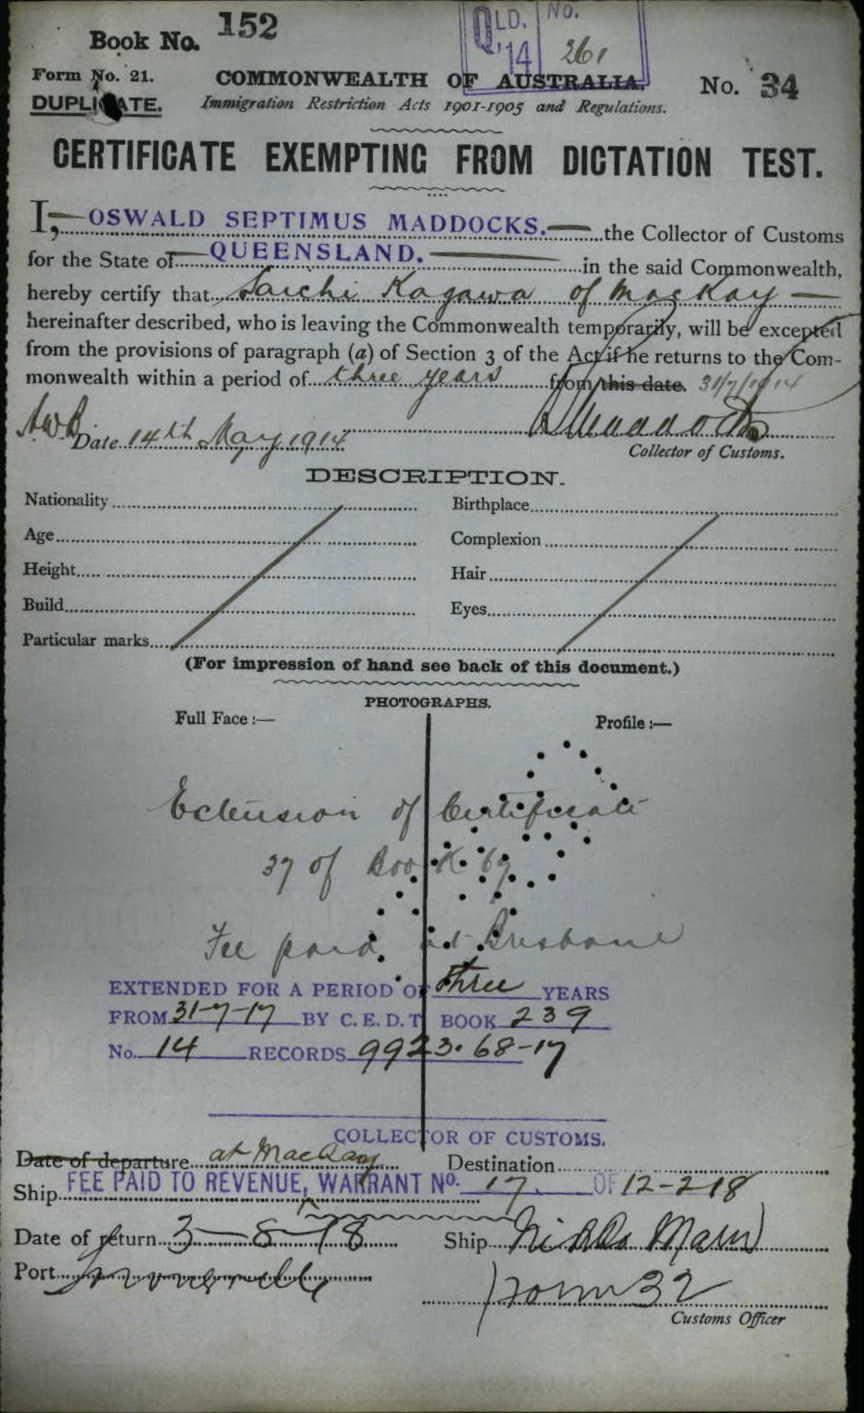 Book No. 152
QLD. No.
'14 261
Form No. 21.
COMMONWEALTH OF AUSTRALIA.
No. 34
DUPLICATE.
Immigration Restriction Acts 1901-1905 and Regulations.
CERTIFICATE EXEMPTING FROM DICTATION TEST.
I, OSWALD SEPTIMUS MADDOCKS. the Collector of Customs
for the State of QUEENSLAND. in the said Commonwealth,
hereby certify that Saichi Kagawa of Mackay
hereinafter described, who is leaving the Commonwealth temporarily, will be excepted
from the provisions of paragraph (a) of Section 3 of the Act if he returns to the Com-
monwealth within a period of three years from this date. 31/7/1914
Date 14th May 1914
Collector of Customs.
DESCRIPTION.
Nationality Birthplace
Age Complexion
Height Hair
Build Eyes
Particular marks
(For impression of hand see back of this document.)
PHOTOGRAPHS.
Full Face :— Profile :—
Extension of Certificate
37 of Book 69
Fee paid at Brisbane
EXTENDED FOR A PERIOD OF three YEARS
FROM 31-7-17 BY C.E.D.T. BOOK 239
No. 14 RECORDS 9923.68-17
COLLECTOR OF CUSTOMS.
Date of departure at Mackay Destination
Ship FEE PAID TO REVENUE, WARRANT No. 17 OF 12-2-18
Date of return 3-8-18 Ship Nikko Maru
Port
Form 32
Customs Officer